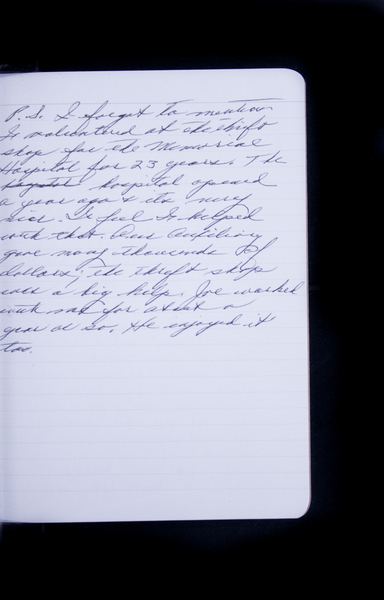 P.S. I forgot to mention
I volunteered at the thrift
shop for the Memorial
Hospital for 23 years. The
hospital hospital opened
a year ago & its very
nice. I feel I helped
with that. Our Auxiliary
gave many thousands of
dollars, the thrift shop
was a big help. Joe worked
with me for about a
year or so. He enjoyed it
too.